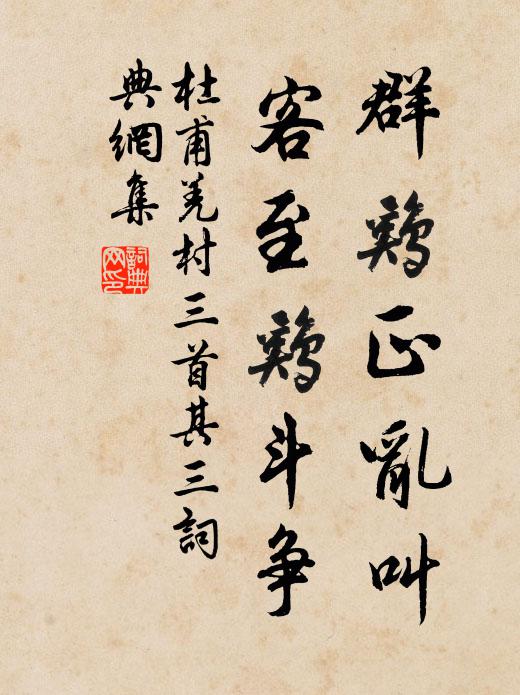 群鷄正亂叫
客至鷄斗争
杜甫羌村三首其三詞
典網集
詞典網印